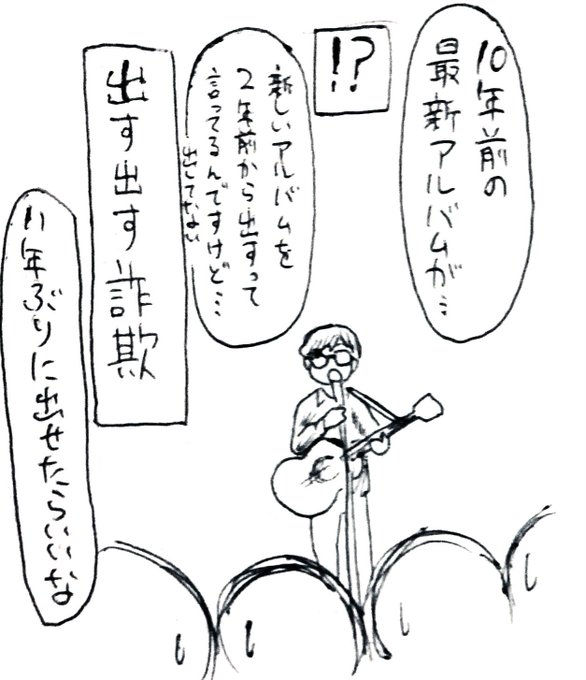 10年前の
最新アルバムが…
!?
新しいアルバムを
2年前から出すって
言ってるんですけど…
出してない
出す出す詐欺
11年ぶりに出せたらいいな